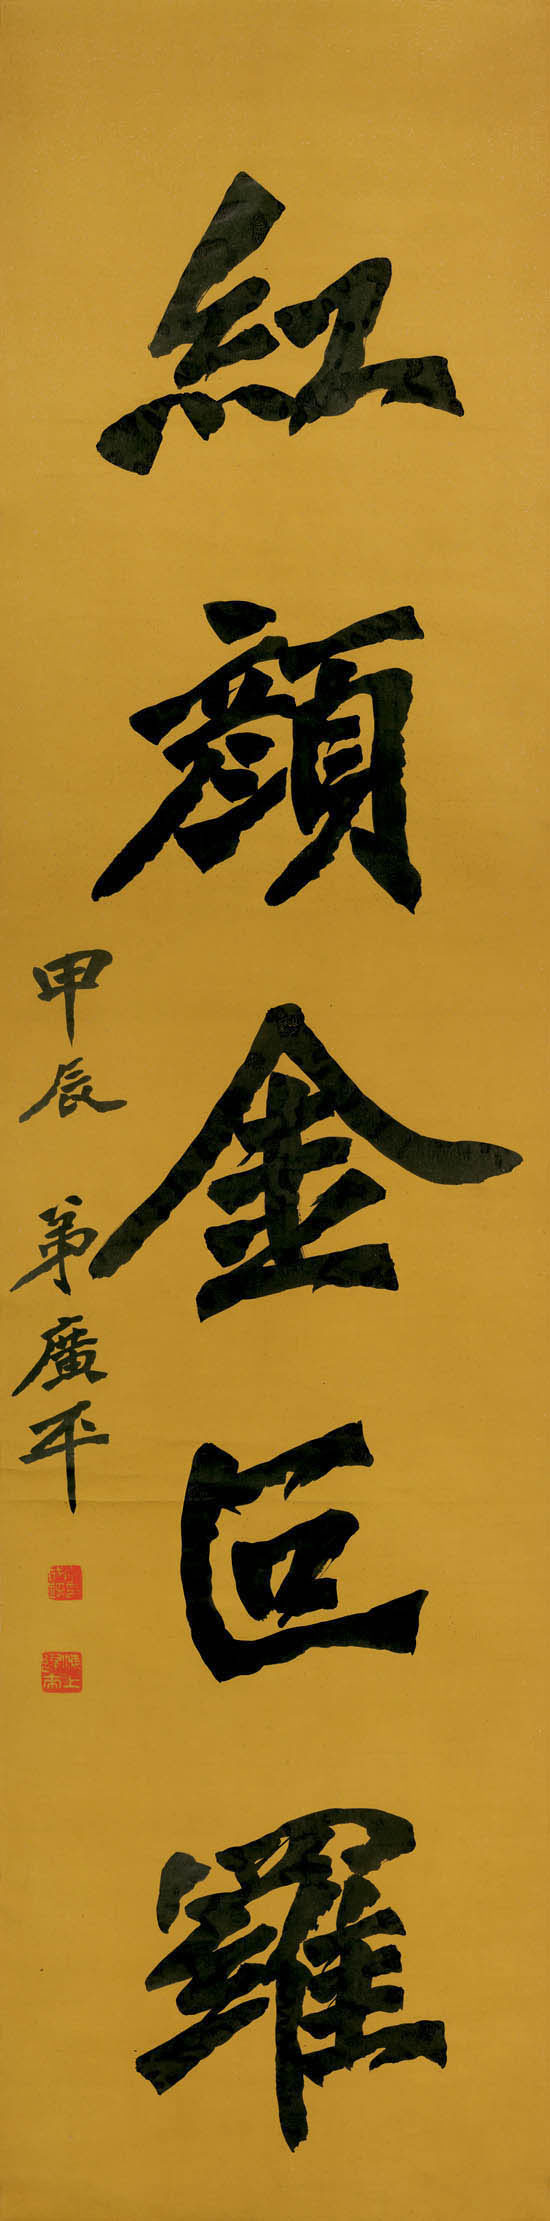 紅顔金叵羅
甲辰 弟廣平